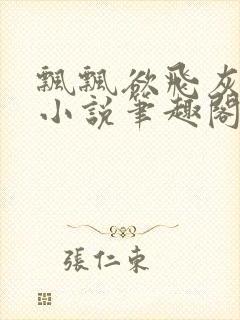 飄飄欲飛灰
小說筆趣閣
張仁東